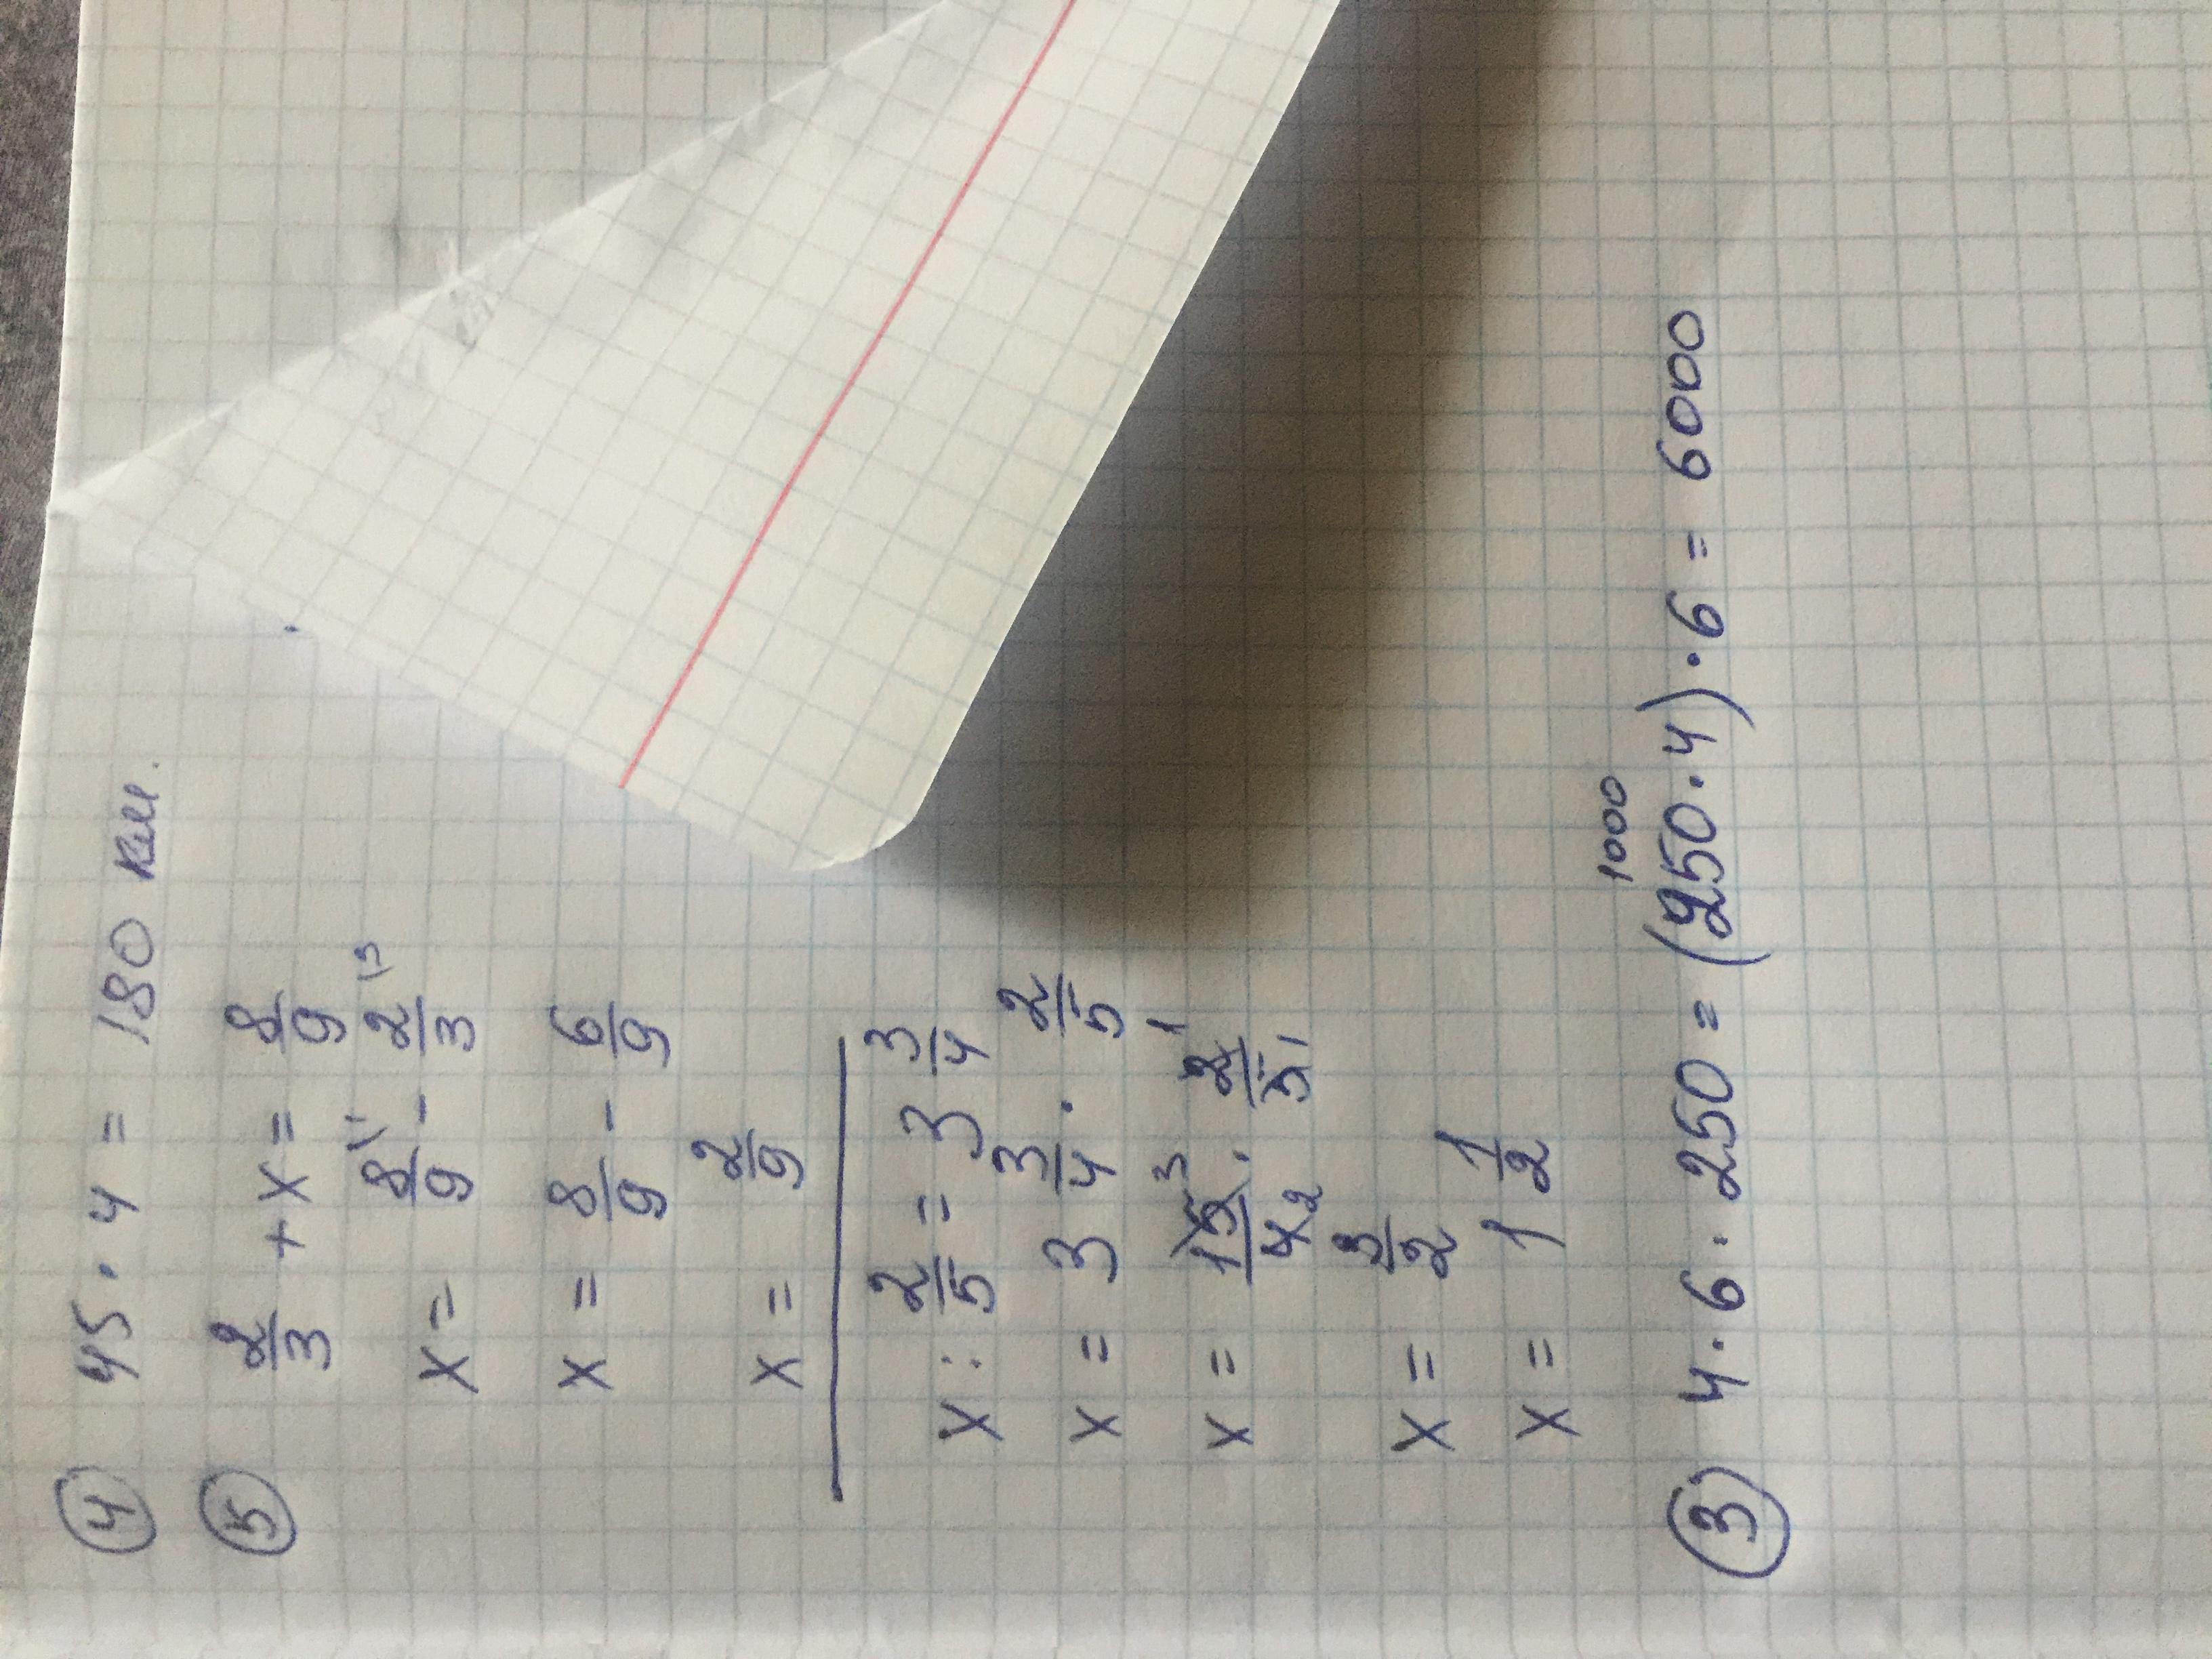 ④ 45 · 4 = 180 км.
⑤ 2/3 + x = 8/9
x = 8/9 \1 - 2/3 \3
x = 8/9 - 6/9
x = 2/9
x : 2/5 = 3 3/4
x = 3 3/4 · 2/5
x = 15 3/4 2 · 2 1/5 1
x = 3/2
x = 1 1/2
1000
③ 4 · 6 · 250 = (250 · 4) · 6 = 6000